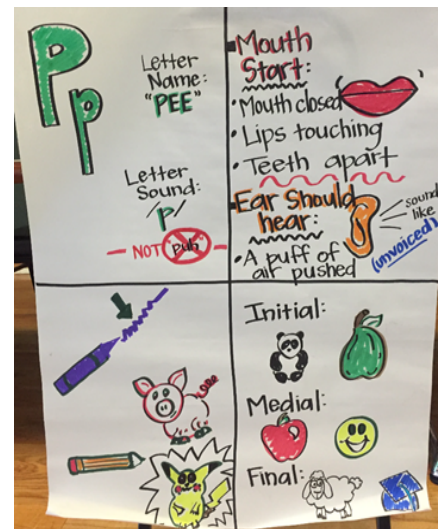 Pp
Letter
Name:
"PEE"
Letter
Sound:
/p/
NOT puh
Mouth
Start:
• Mouth closed
• Lips touching
• Teeth apart
Ear Should
hear:
• A puff of
air pushed
sound
like
(unvoiced)
Initial:
Medial:
Final: